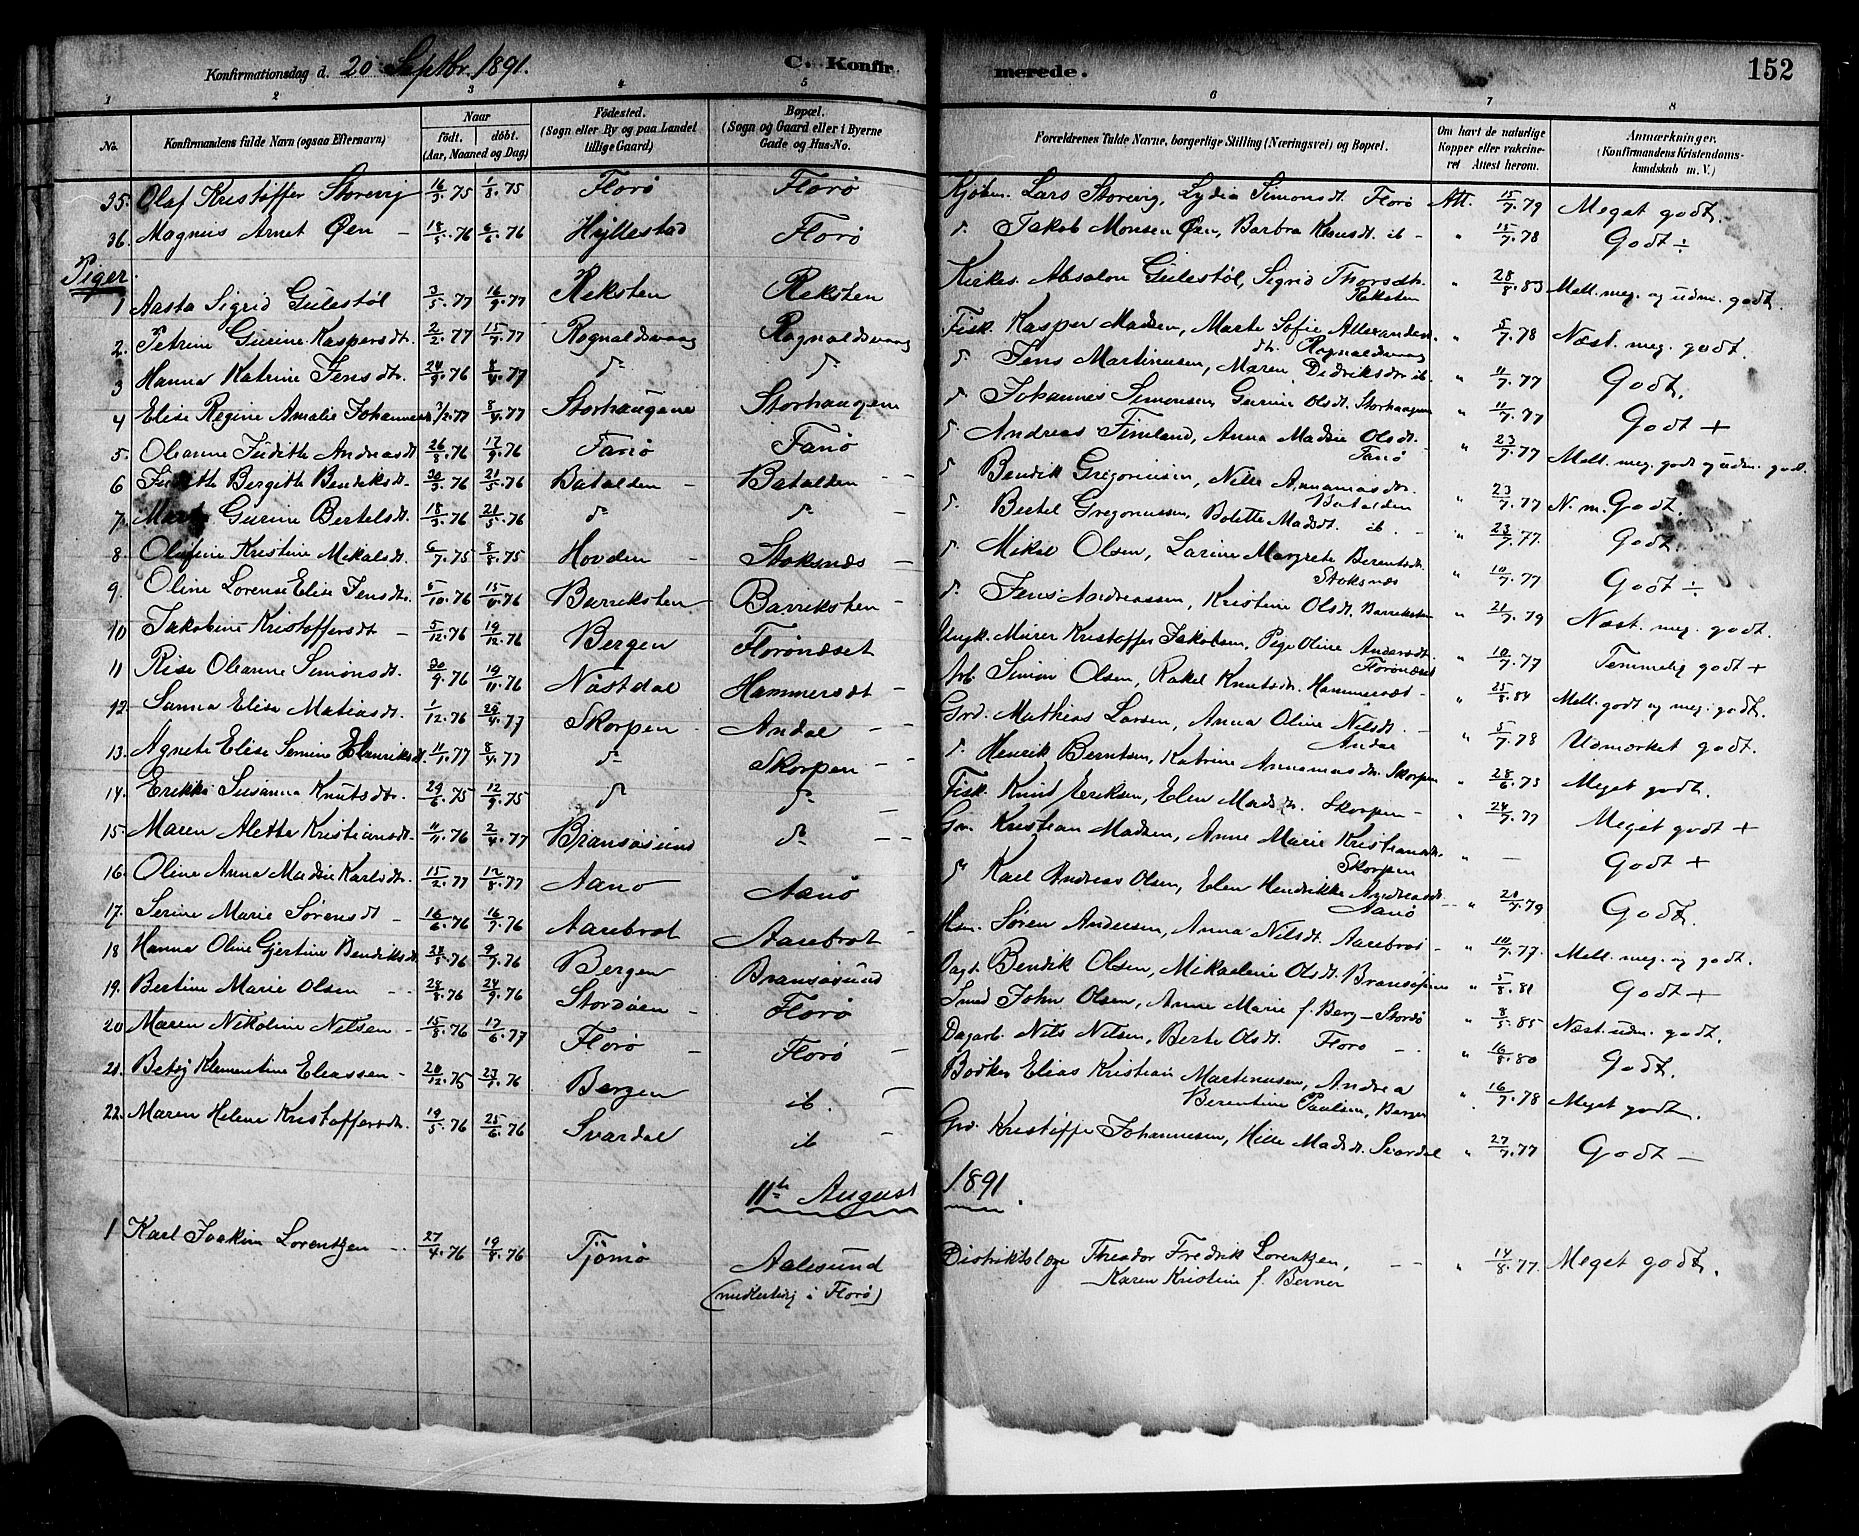 Konfirmationsdag d. 20 Septbr. 1891. C. Konfirmerede. 152
1 2 3 4 5 6 7 8
No. Konfirmandens fulde Navn (ogsaa Efternavn) Naar født. døbt. (Aar, Maaned og Dag) Fødested. (Sogn eller By og paa Landet tillige Gaard) Bopæl. (Sogn og Gaard eller i Byerne Gade og Hus-No. Forældrenes fulde Navne, borgerlige Stilling (Næringsvei) og Bopæl. Om havt de naturlige Kopper eller vakcineret Attest herom. Anmærkninger. (Konfirmandens Kristendomskundskab m. V.)
35. Olaf Kristoffer Storevig 16/3.75 1/8.75 Florø Florø Kjøbm. Lars Storevig, Lydia Simonsdt. Florø Att. 15/7.79 Meget godt.
36. Magnus Arnet Øen - 18/5.76 6/6.76 Hyllestad Florø Jakob Monsen Øen, Barbra Knusdt. ib - " 15/7.78 Godt ÷
Piger.
1 Aasta Sigrid Gulestøl 3/5.77 16/9.77 Reksten Reksten Kirkes. Absalon Gulestøl, Sigrid Thorsdtr. Reksten " 28/8.83 Mell. meg. og udm. godt.
2. Petrine Gurine Kaspersdt. 2/2.77 15/7.77 Rognaldsvaag Rognaldsvaag Fisk. Kasper Madsen, Marte Sofie Allexandersdt. Rognaldsvaag " 5/7.78 Næst. meg. godt.
3 Hanna Katrine Jensdt. 24/9.76 8/4.77 do do do Jens Martinusen, Maren Didriksdtr ib. " 11/7.77 Godt.
4 Elise Regine Amalie Johannesdt 8/4.77 Storhaugene Storhaugene do Johannes Simonsen, Gurine Olsdt. Storhaugen " 11/7.77 Godt +
5. Oleanne Judith Andreasdt 26/8.76 17/9.76 Fanø Fanø do Andreas Fimland, Anna Madsie Olsdt. Fanø " 23/7.77 Mell. meg. godt og udm. godt.
6 Judith Bergith Bendiksdt. 30/3.76 21/5.76 Batalden - Batalden - do Bendik Gregoriusen, Nille Annaniasdtr. Batalden " 23/7.77 N. m. Godt.
7. Marta Gurine Bertelsdt. 18/3.76 21/5.76 do do - do Bertel Gregoriussen, Bolette Madsdt. ib. - " 23/7.77. Godt.
8. Olufine Kristine Mikalsdt. 6/7.75 8/8.75 Hovden - Stoksnæs - do Mikal Olsen, Larine Margrete Berentsdt. Stoksnæs " 10/7.77 Godt ÷
9. Oline Lorense Elise Jensdtr. 5/10.76 Barreksten Barreksten - do Jens Andreassen, Kristine Olsdt. Barreksten " 21/7.79 Næst. meg. godt.
10 Jakobine Kristoffersdt - 5/12.76 19/12.76 Bergen Florønæset Ungk. Murer Kristoffer Jakobsen, Pege Oline Andersdt. Florønæset " 10/7.77 Temmelig godt +
11 Rise Oleanne Simonsdt. 30/9.76 19/11.76 Nastdal Hammersdt - Arb. Simon Olsen, Rakel Knutsdt. Hammersdt - " 25/8.84 Mell. godt og meg. godt.
12. Sanna Elise Matiasdt. 1/12.76 29/4.77 Skorpen - Andal - Grd. Mathias Larsen, Anna Oline Nilsdt. Andal " 5/7.78 Udmærket godt.
13. Agnete Elise Semine Henriksdt. 11/1.77 8/4.77 do Skorpen - - do Henrik Berntsen, Katrine Annaniasdtr. Skorpen " 28/6.78 Meget godt.
14. Erikke Susanna Knutsdtr. 29/6.75 12/9.75 do do - Fisk. Knud Eriksen, Elen Madsdtr. Skorpen - " 24/7.77 Meget godt +
15. Maren Alette Kristiansdt. 11/11.76 2/4.77 Bransøsund do - - Gm. Kristian Madsen, Anne Marie Kristiansdtr. Skorpen " - Godt +
16. Oline Anna Madsie Karlsdtr. 15/2.77 12/8.77 Aanø Aanø do Karl Andreas Olsen, Elen Hendrikke Andreasdt. Aanø - " 20/7.79 Godt.
17. Serine Marie Sørensdt - 16/6.76 16/7.76 Aarebrot Aarebrot - Hsm. Søren Andersen, Anna Nilsdt. Aarebrot - " 10/7.77. Mell. meg. og godt.
18 Hanna Oline Gjertine Bendiksdt 28/5.76 9/7.76 Bergen Bransøsund Dagt. Bendik Olsen, Mikaeline Olsdt. Bransø " 5/8.81 Godt +
19. Bertine Marie Olsen - - 28/8.76 24/9.76 Stordøen - Florø Smed John Olsen, Anne Marie f. Berg - Stordø " 8/5.85 Næst. udm. godt.
20 Maren Nikoline Nilsen - 15/8.76 17/6.77 Florø - Florø - Dagarb. Nils Nilsen, Berte Olsdt. Florø - " 16/8.80 Godt.
21. Betsy Klementine Eliassen - 20/12.75 23/7.76 Bergen ib. - Bødker Elias Kristian Martinusen, Andrea Berentine Paulsen, Bergen " 16/7.78 Meget godt.
22. Maren Helene Kristoffersdtr. 19/5.76 25/6.76 Svardal ib - Grd. Kristoffer Johannesen, Hille Madsdt. Svardal " 27/7.77 Godt -
11te August 1891.
1 Karl Joakim Lorentzen - 27/4.76 19/8.76 Tjømø Aalesund (midlertidig i Florø) Distriktslæge Theodor Fredrik Lorentzen, - -
Karen Kristine f. Berner " 14/8.77. Meget godt.